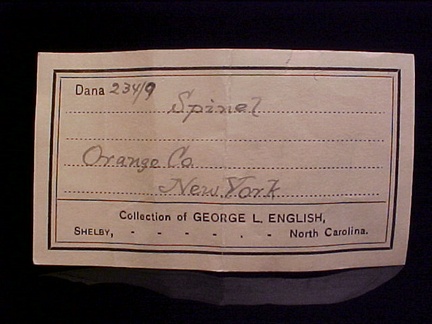 Dana 234/9
Spinel
Orange Co
New York
Collection of GEORGE L. ENGLISH,
SHELBY, - - - - . - North Carolina.